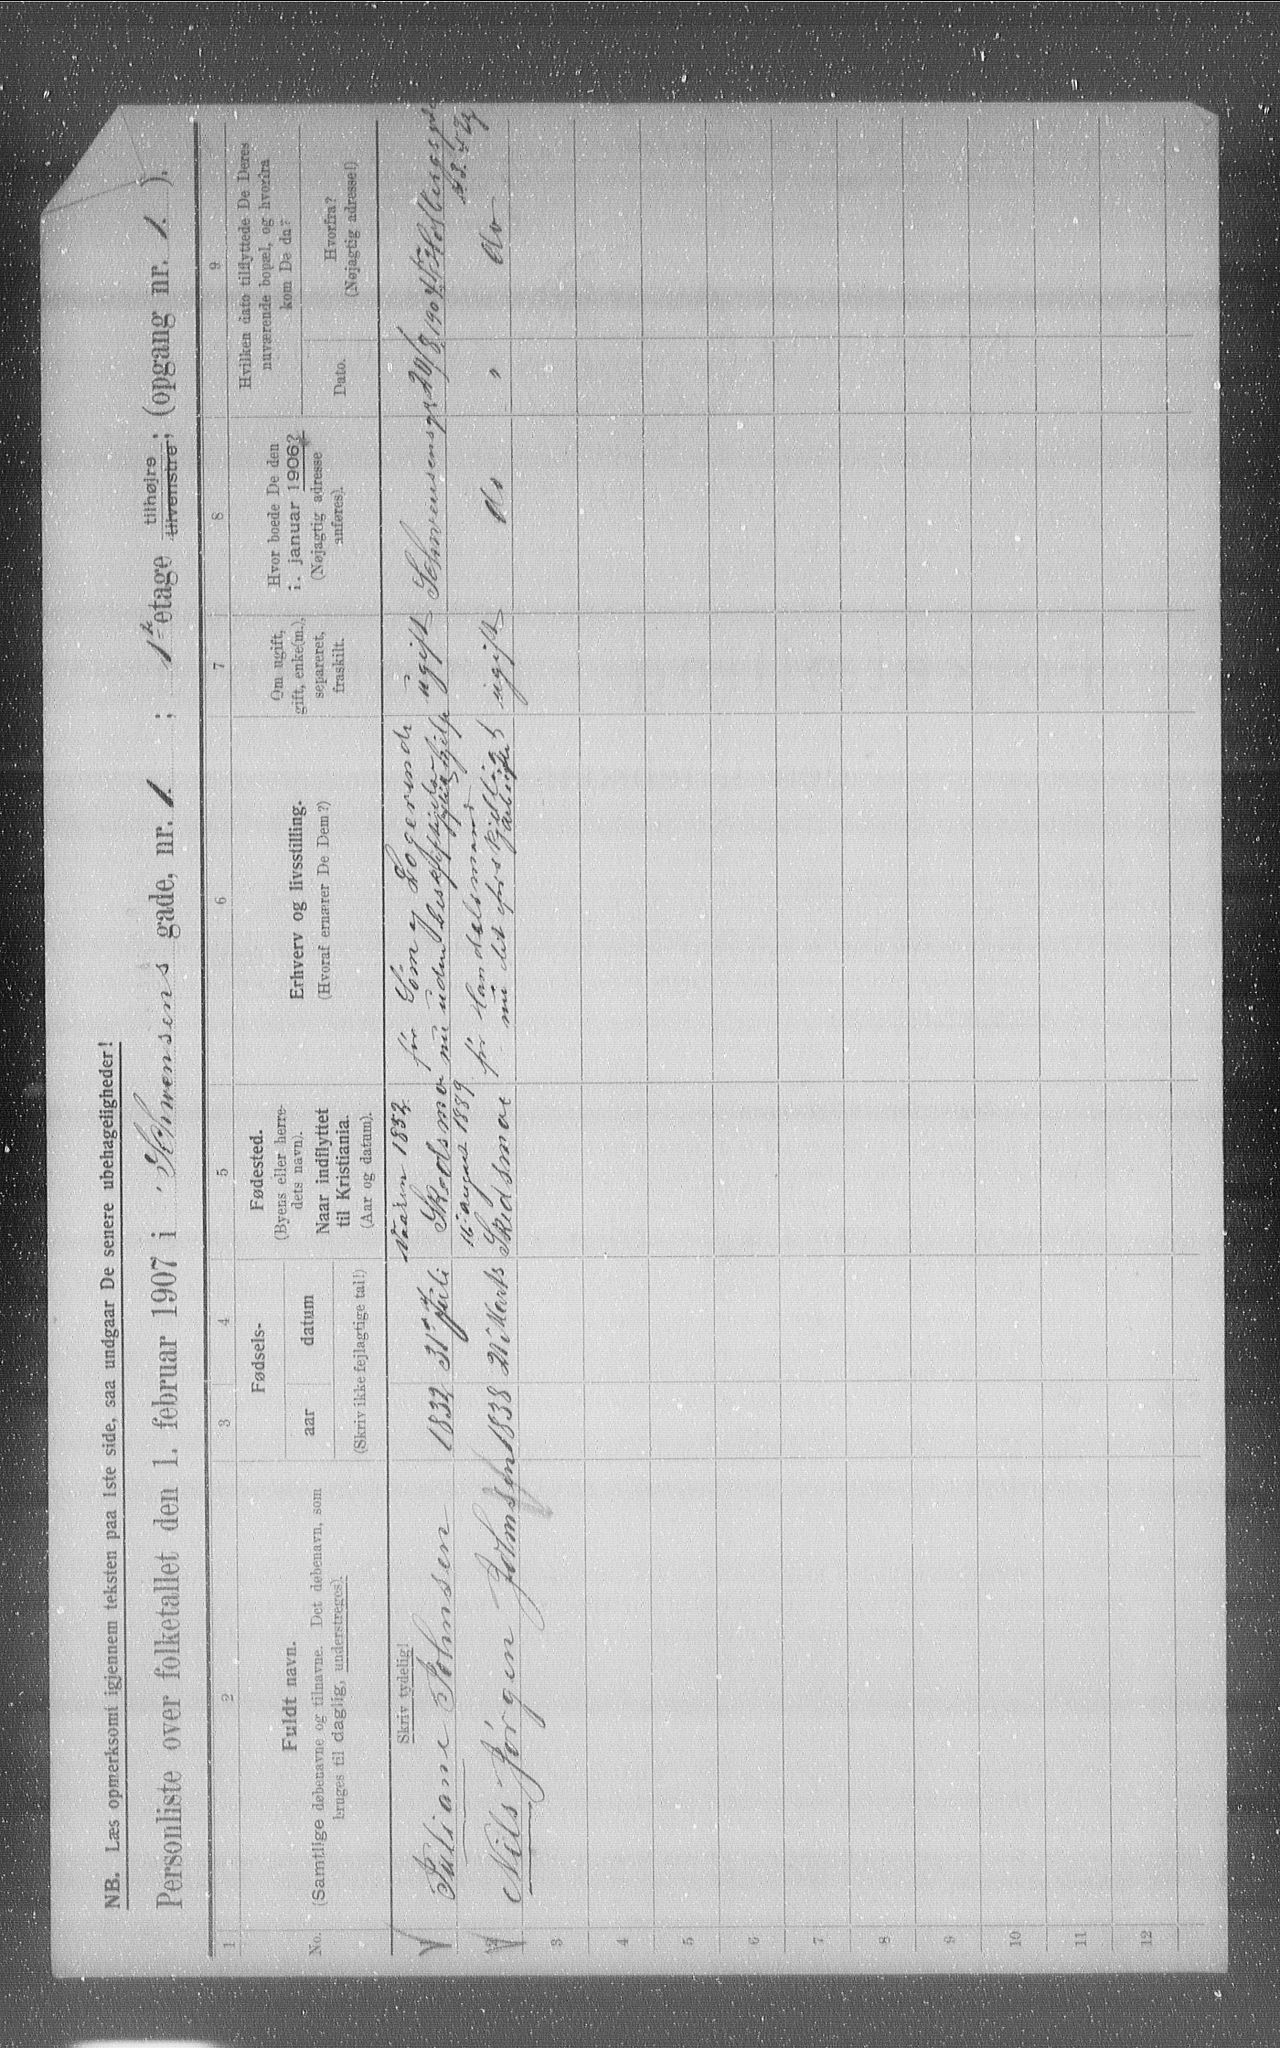 NB. Læs opmerksomt igjennem teksten paa 1ste side, saa undgaar De senere ubehageligheder!
Personliste over folketallet den 1. februar 1907 i Schwensens gade, nr. 1. ; 1ste etage tilhøjre tilvenstre; (opgang nr. 1. ).
1 2 3 4 5 6 7 8 9
No.
Fuldt navn.
(Samtlige døbenavne og tilnavne. Det døbenavn, som
bruges til daglig, understreges).
Fødsels-
aar
datum
(Skriv ikke fejlagtige tal!)
Fødested.
(Byens eller herre-
dets navn).
Naar indflyttet
til Kristiania.
(Aar og datum).
Erhverv og livsstilling.
(Hvoraf ernærer De Dem?)
Om ugift,
gift, enke(m.),
separeret,
fraskilt.
Hvor boede De den
1. januar 1906?
(Nøjagtig adresse
anføres).
Hvilken dato tilflyttede De Deres
nuværende bopæl, og hvorfra
kom De da?
Dato.
Hvorfra?
(Nøjagtig adresse!)
Skriv tydelig!
Vaaren 1852
før Søm og Logerende
1 Juliane Johnsen 1832 31te Juli Skedsmo nu uden beskjæftigelse ugift Schwensensgd
16 august 1889 før Handelsmand
2 Nils Jørgen Johnsen 1838 21 Marts Skedsmoe nu det forskjellig arbeide ugift do " do
3
4
5
6
7
8
9
10
11
12